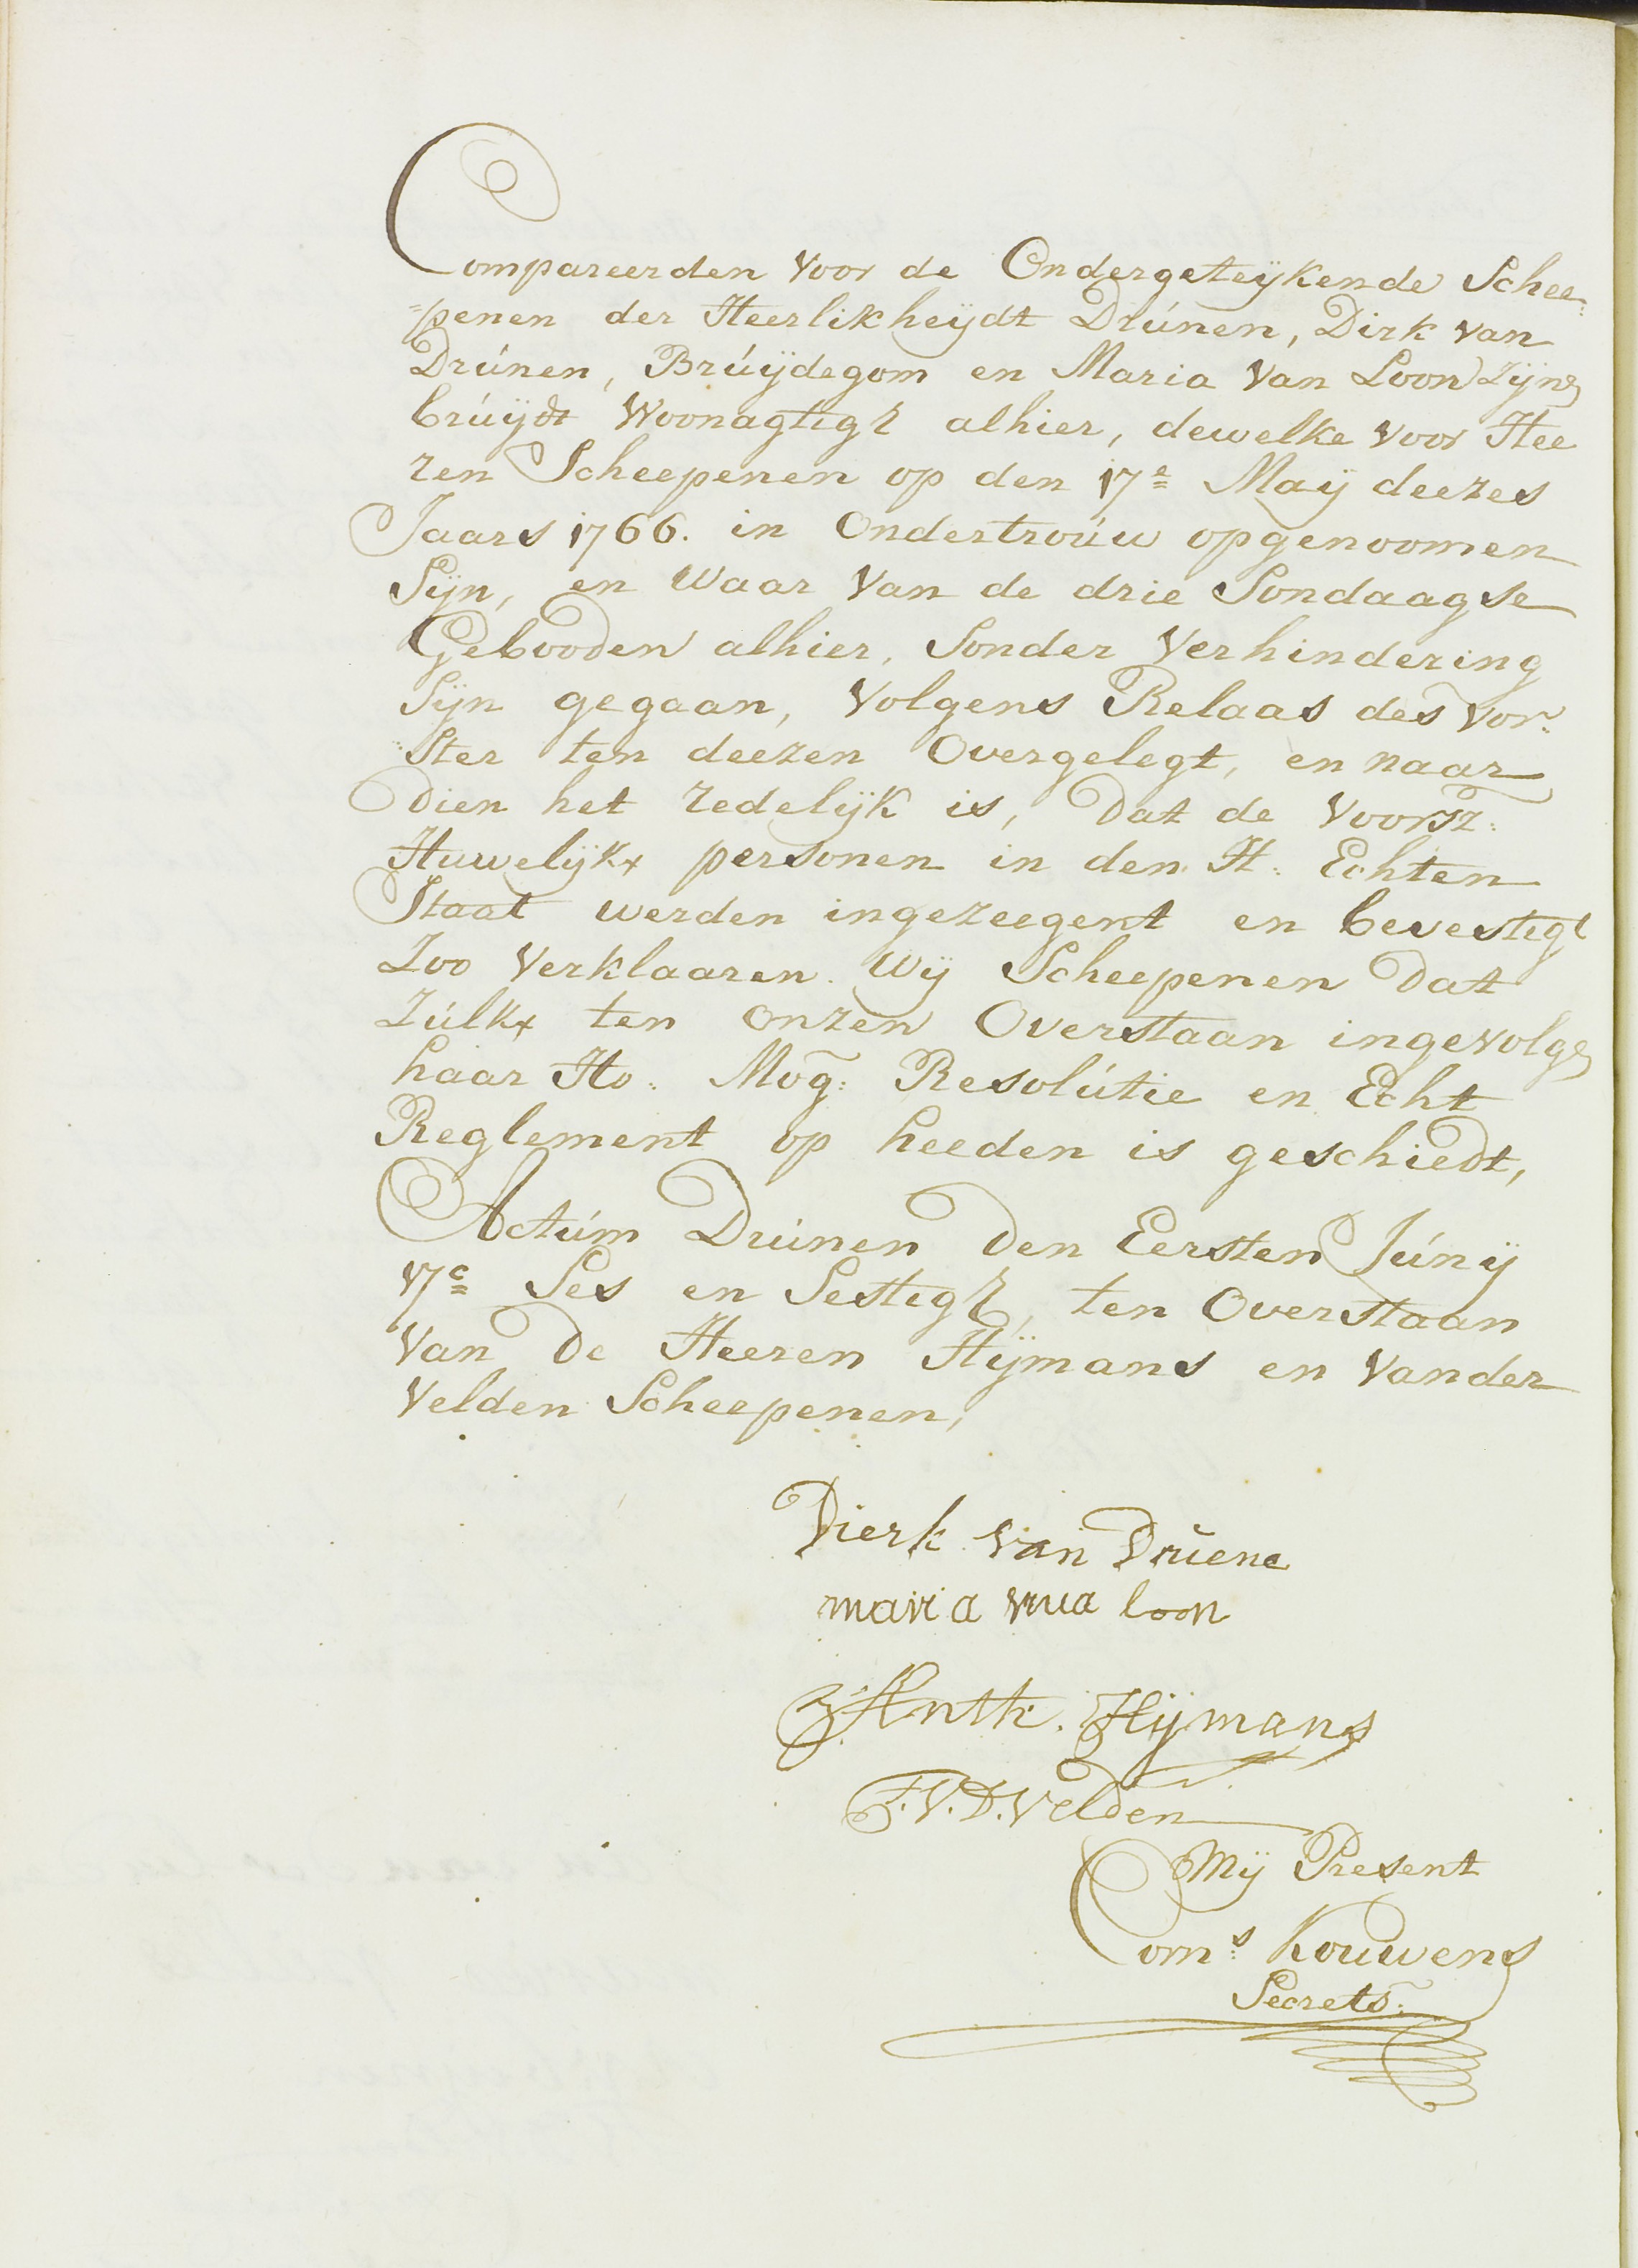 Compareerden voor de Ondergeteijkende Schee-
=penen der Heerlikheijdt Drúnen, Dirk van
Drúnen, Brúijdegom en Maria van Loon Zijne
brúijdt Woonagtigt alhier, dewelke voor Hee
ren Scheepenen op den 17e Maij deezes
Jaars 1766. in Ondertroúw opgenoomen
Sijn, en Waar van de drie Sondaagse
Gebooden alhier, Sonder Verhindering
Sijn gegaan, Volgens Relaas des Vor-
Ster ten deezen Overgelegt, en naar
dien het redelijk is, dat de Voorsz:
Huwelijkx personen in den H: Echten
Staat werden ingezeegent en bevestigt
Zoo Verklaaren Wij Scheepenen dat
Zúlkx ten onzen Overstaan ingevolge
haar Ho: Mog: Resolútie en Echt
Reglement op heeden is geschiedt,
Actúm Drúnen den Eersten Júnij
17c Ses en Sestigt, ten Overstaan
Van de Heeren Hijmans en Vander
Velden Scheepenen,
Dierk van Drúene
maria vna loon
Anth. Hijmans
F. V. D. Velden
Mij Present
Corns Kouwens
Secrets: